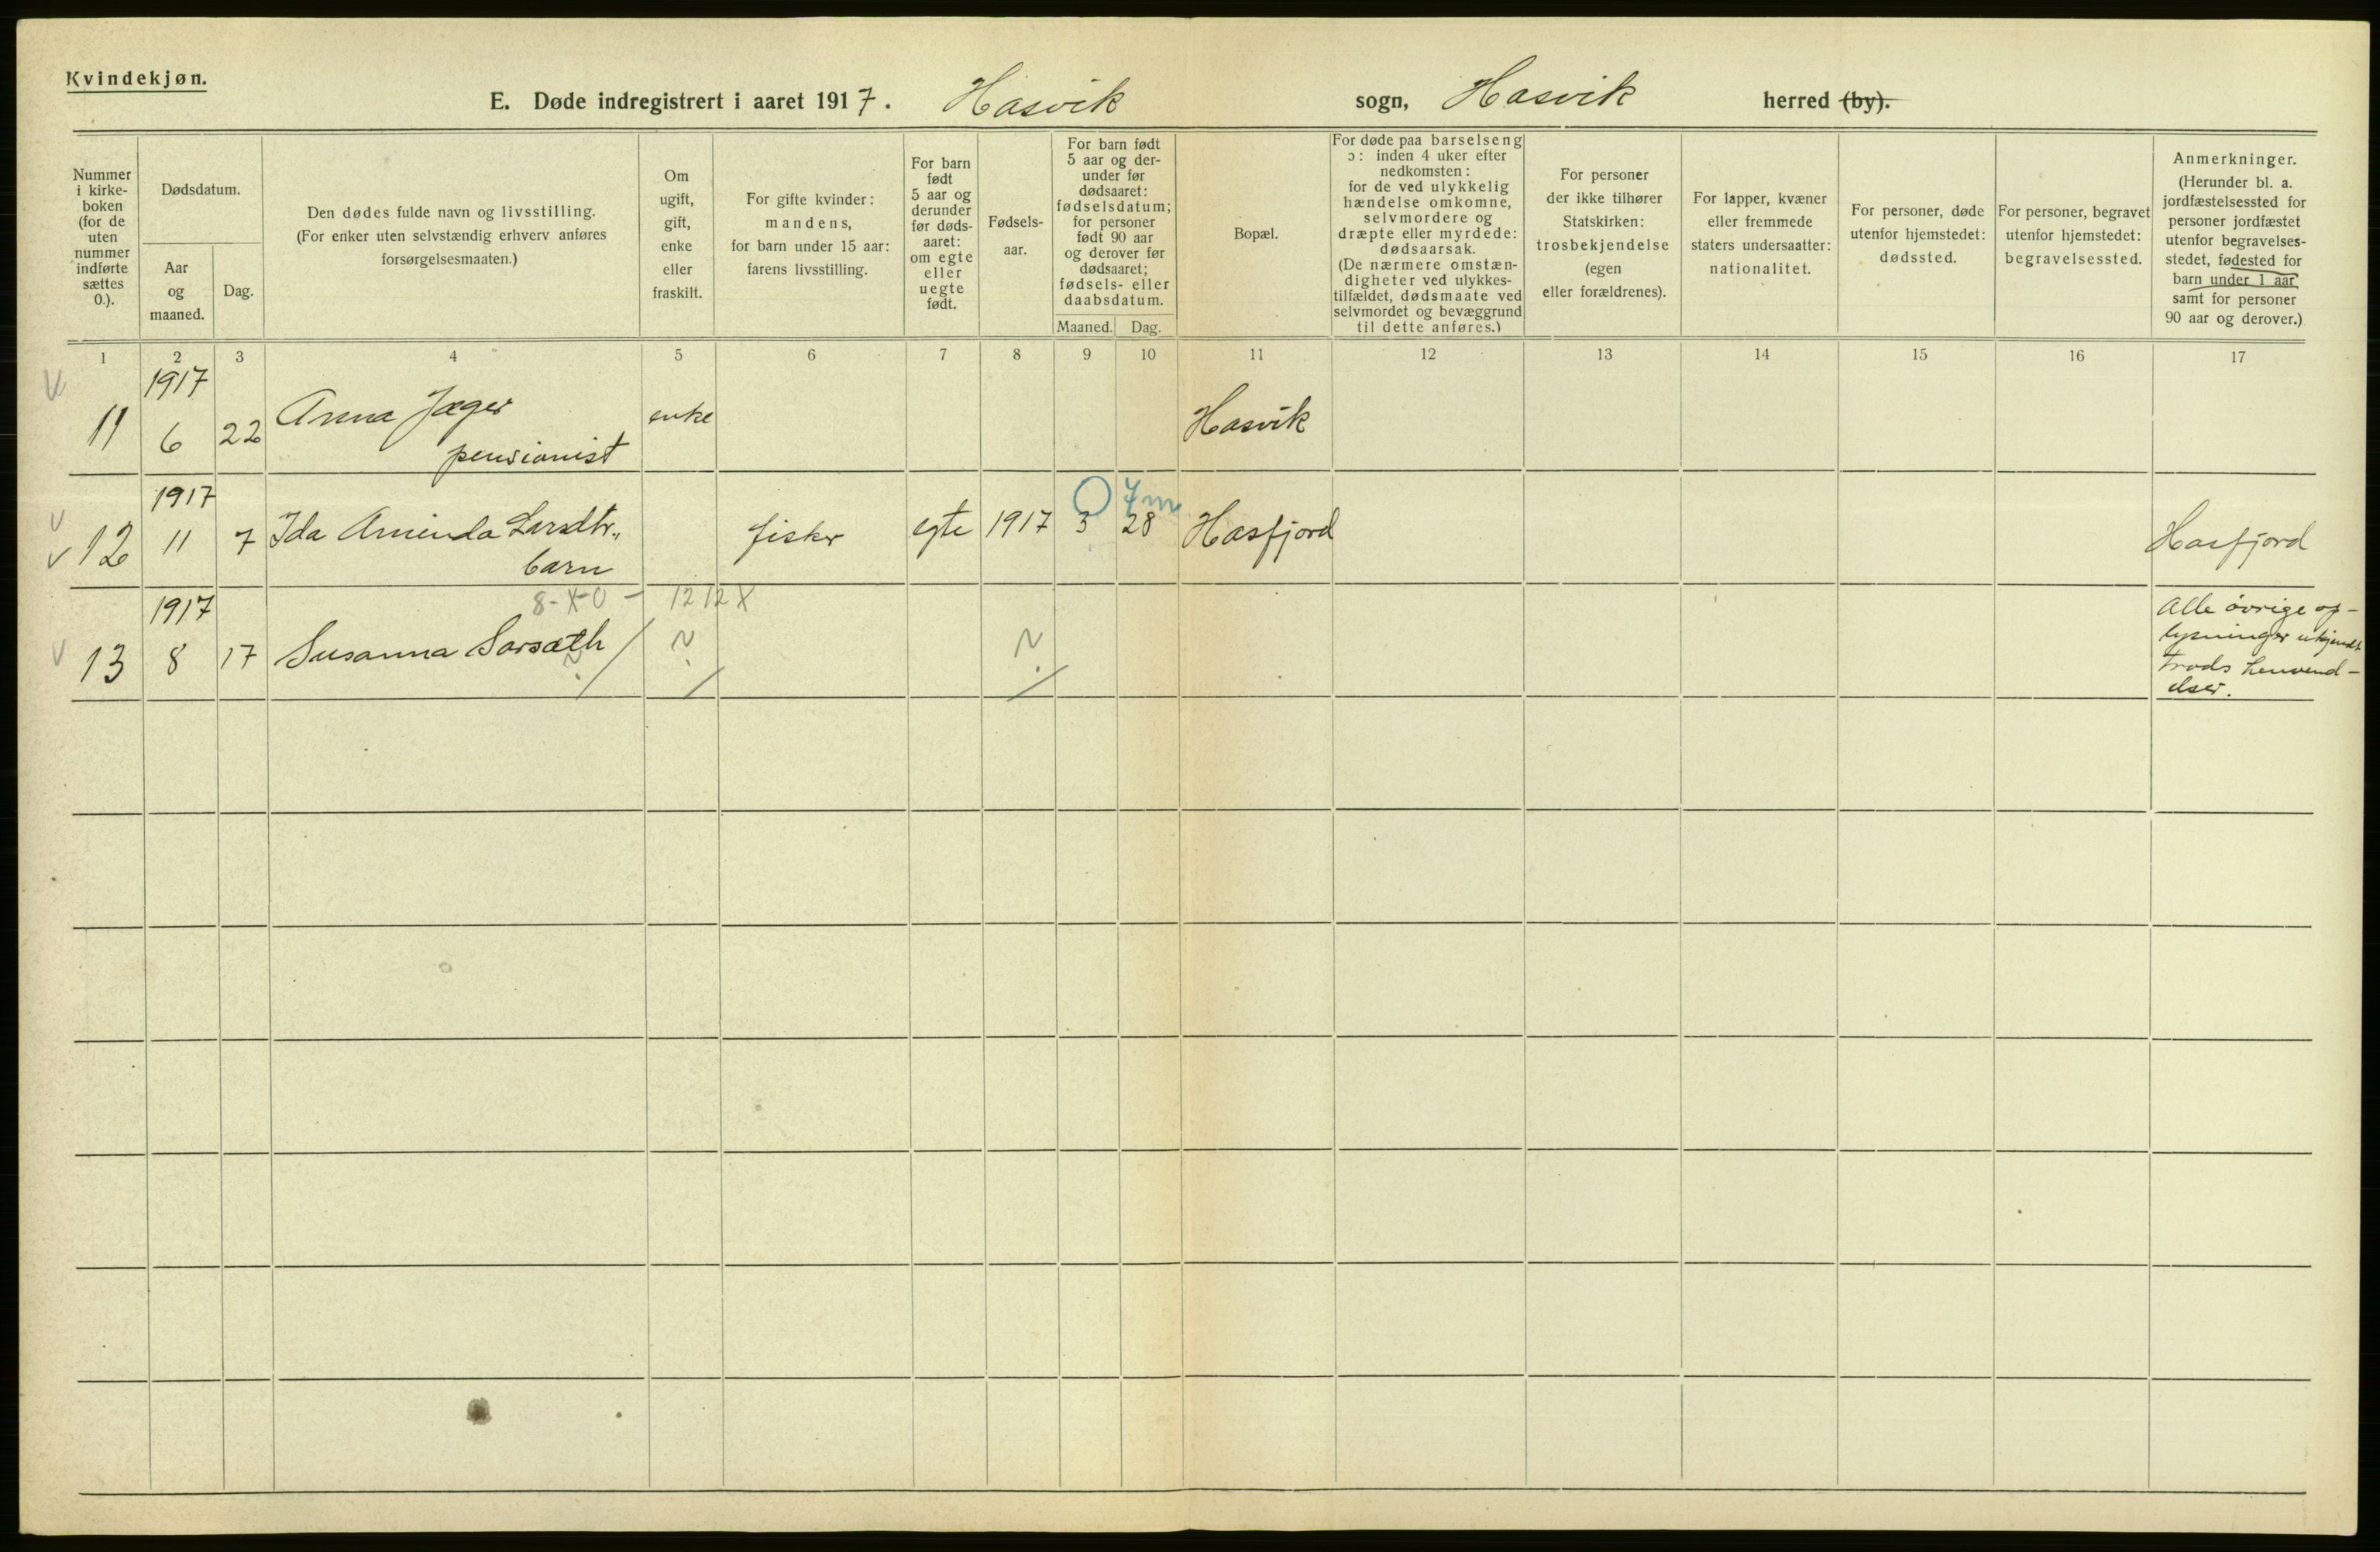 Kvindekjøn.
E. Døde indregistrert i aaret 1917. Hasvik sogn, Hasvik herred (by).
Nummer
i kirke-
boken
(for de
uten
nummer
indførte
sættes
0.).
Dødsdatum.
Aar
og
maaned.
Dag.
Den dødes fulde navn og livsstilling.
(For enker uten selvstændig erhverv anføres
forsørgelsesmaaten.)
Om
ugift,
gift,
enke
eller
fraskilt.
For gifte kvinder:
mandens,
for barn under 15 aar:
farens livsstilling.
For barn
født
5 aar og
derunder
før døds-
aaret:
om egte
eller
uegte
født.
Fødsels-
aar.
For barn født
5 aar og der-
under før
dødsaaret:
fødselsdatum;
for personer
født 90 aar
og derover før
dødsaaret;
fødsels- eller
daabsdatum.
Maaned. Dag.
Bopæl.
For døde paa barselseng
ɔ: inden 4 uker efter
nedkomsten:
for de ved ulykkelig
hændelse omkomne,
selvmordere og
dræpte eller myrdede:
dødsaarsak.
(De nærmere omstæn-
digheter ved ulykkes-
tilfældet, dødsmaate ved
selvmordet og bevæggrund
til dette anføres.)
For personer
der ikke tilhører
Statskirken:
trosbekjendelse
(egen
eller forældrenes).
For lapper, kvæner
eller fremmede
staters undersaatter:
nationalitet.
For personer, døde
utenfor hjemstedet:
dødssted.
For personer, begravet
utenfor hjemstedet:
begravelsessted.
Anmerkninger.
(Herunder bl. a.
jordfæstelsessted for
personer jordfæstet
utenfor begravelses-
stedet, fødested for
barn under 1 aar
samt for personer
90 aar og derover.)
1 2 3 4 5 6 7 8 9 10 11 12 13 14 15 16 17
1917
11 6 22 Anna Jæger enke Hasvik
pensionist
1917 0 7m
12 11 7 Ida Aminda Larsdtr., fisker egte 1917 3 28 Hasfjord Hasfjord
barn
1917 8-X-0 - 1212X
13 8 17 Susanna Sarsæth ? ? ?
Alle øvrige op-
lysninger ukjendt
trods henvend-
elser.